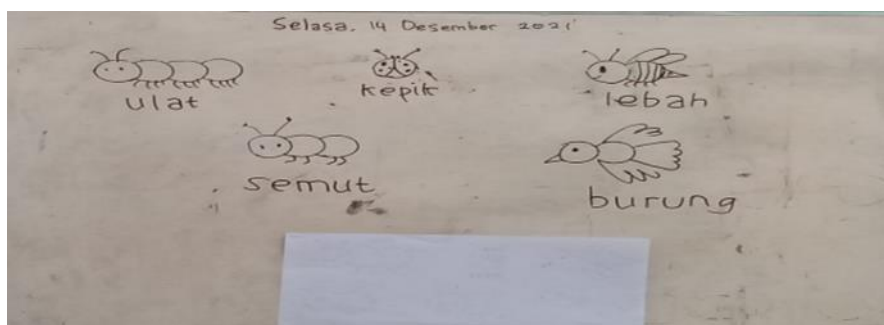 Selasa, 14 Desember 2021
ulat
kepik
lebah
semut
burung